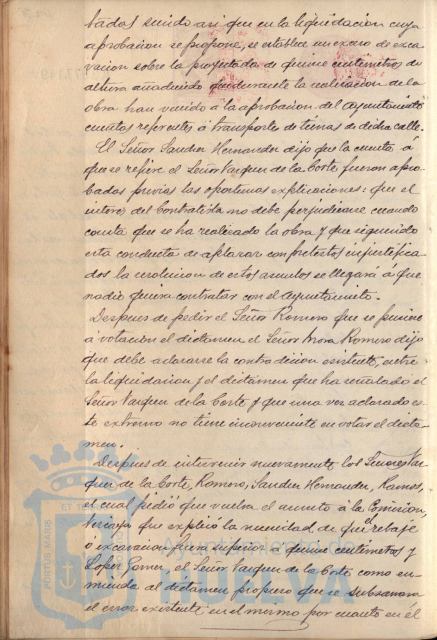 tados siendo asi que en la liquidacion cuya
aprobacion se propone, se establece un exceso de exca
vacion sobre la proyectada de quince centimetros de
altura añadiendo que durante la realizacion de la
obra han venido a la aprobacion del Ayuntamiento
cuentas referentes á transportes de tierras de dicha calle.
El Señor Sanchez Hernandez dijo que la cuenta á
que se refiere el Señor Vazquez de la Corte fueron apro
badas previas las oportunas explicaciones: que el
interes del Contratista no debe perjudicarse cuando
consta que se ha realizado la obra y que siguiendo
esta conducta de aplazar con pretextos injustifica
dos la resolucion de estos asuntos se llegará á que
nadie quiera contratar con el Ayuntamiento.
Despues de pedir el Señor Romero que se pusiese
a votacion el dictamen el Señor Mora Romero dijo
que debe aclararse la contradiccion existente, entre
la liquidacion y el dictamen que ha señalado el
Señor Vazquez de la Corte y que una vez aclarado es
te extremo no tiene inconveniente en votar el dicta
men.
Despues de intervenir nuevamente los Señores Vaz
quez de la Corte, Romero, Sanchez Hernandez, Ramos,
el cual pidió que vuelva el asunto á la Comision,
que explicó la necesidad de que el rebaje
ó excavacion fuera superior a quince centimetros y
Lopez Gomez, el Señor Vazquez de la Corte como en
mienda al dictamen propuso que se subsanara
el error existente en el mismo por cuanto en él
PORTUS MARIS
ET TE
Ayuntamiento de
Huelva